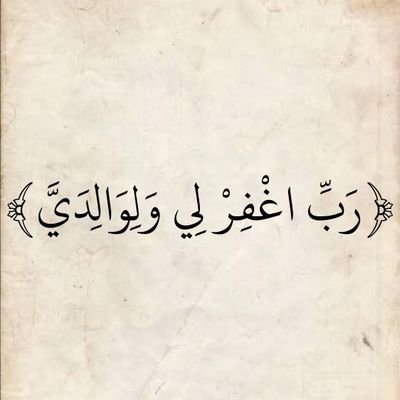 ﴿رَبِّ اغْفِرْ لِي وَلِوَالِدَيَّ﴾